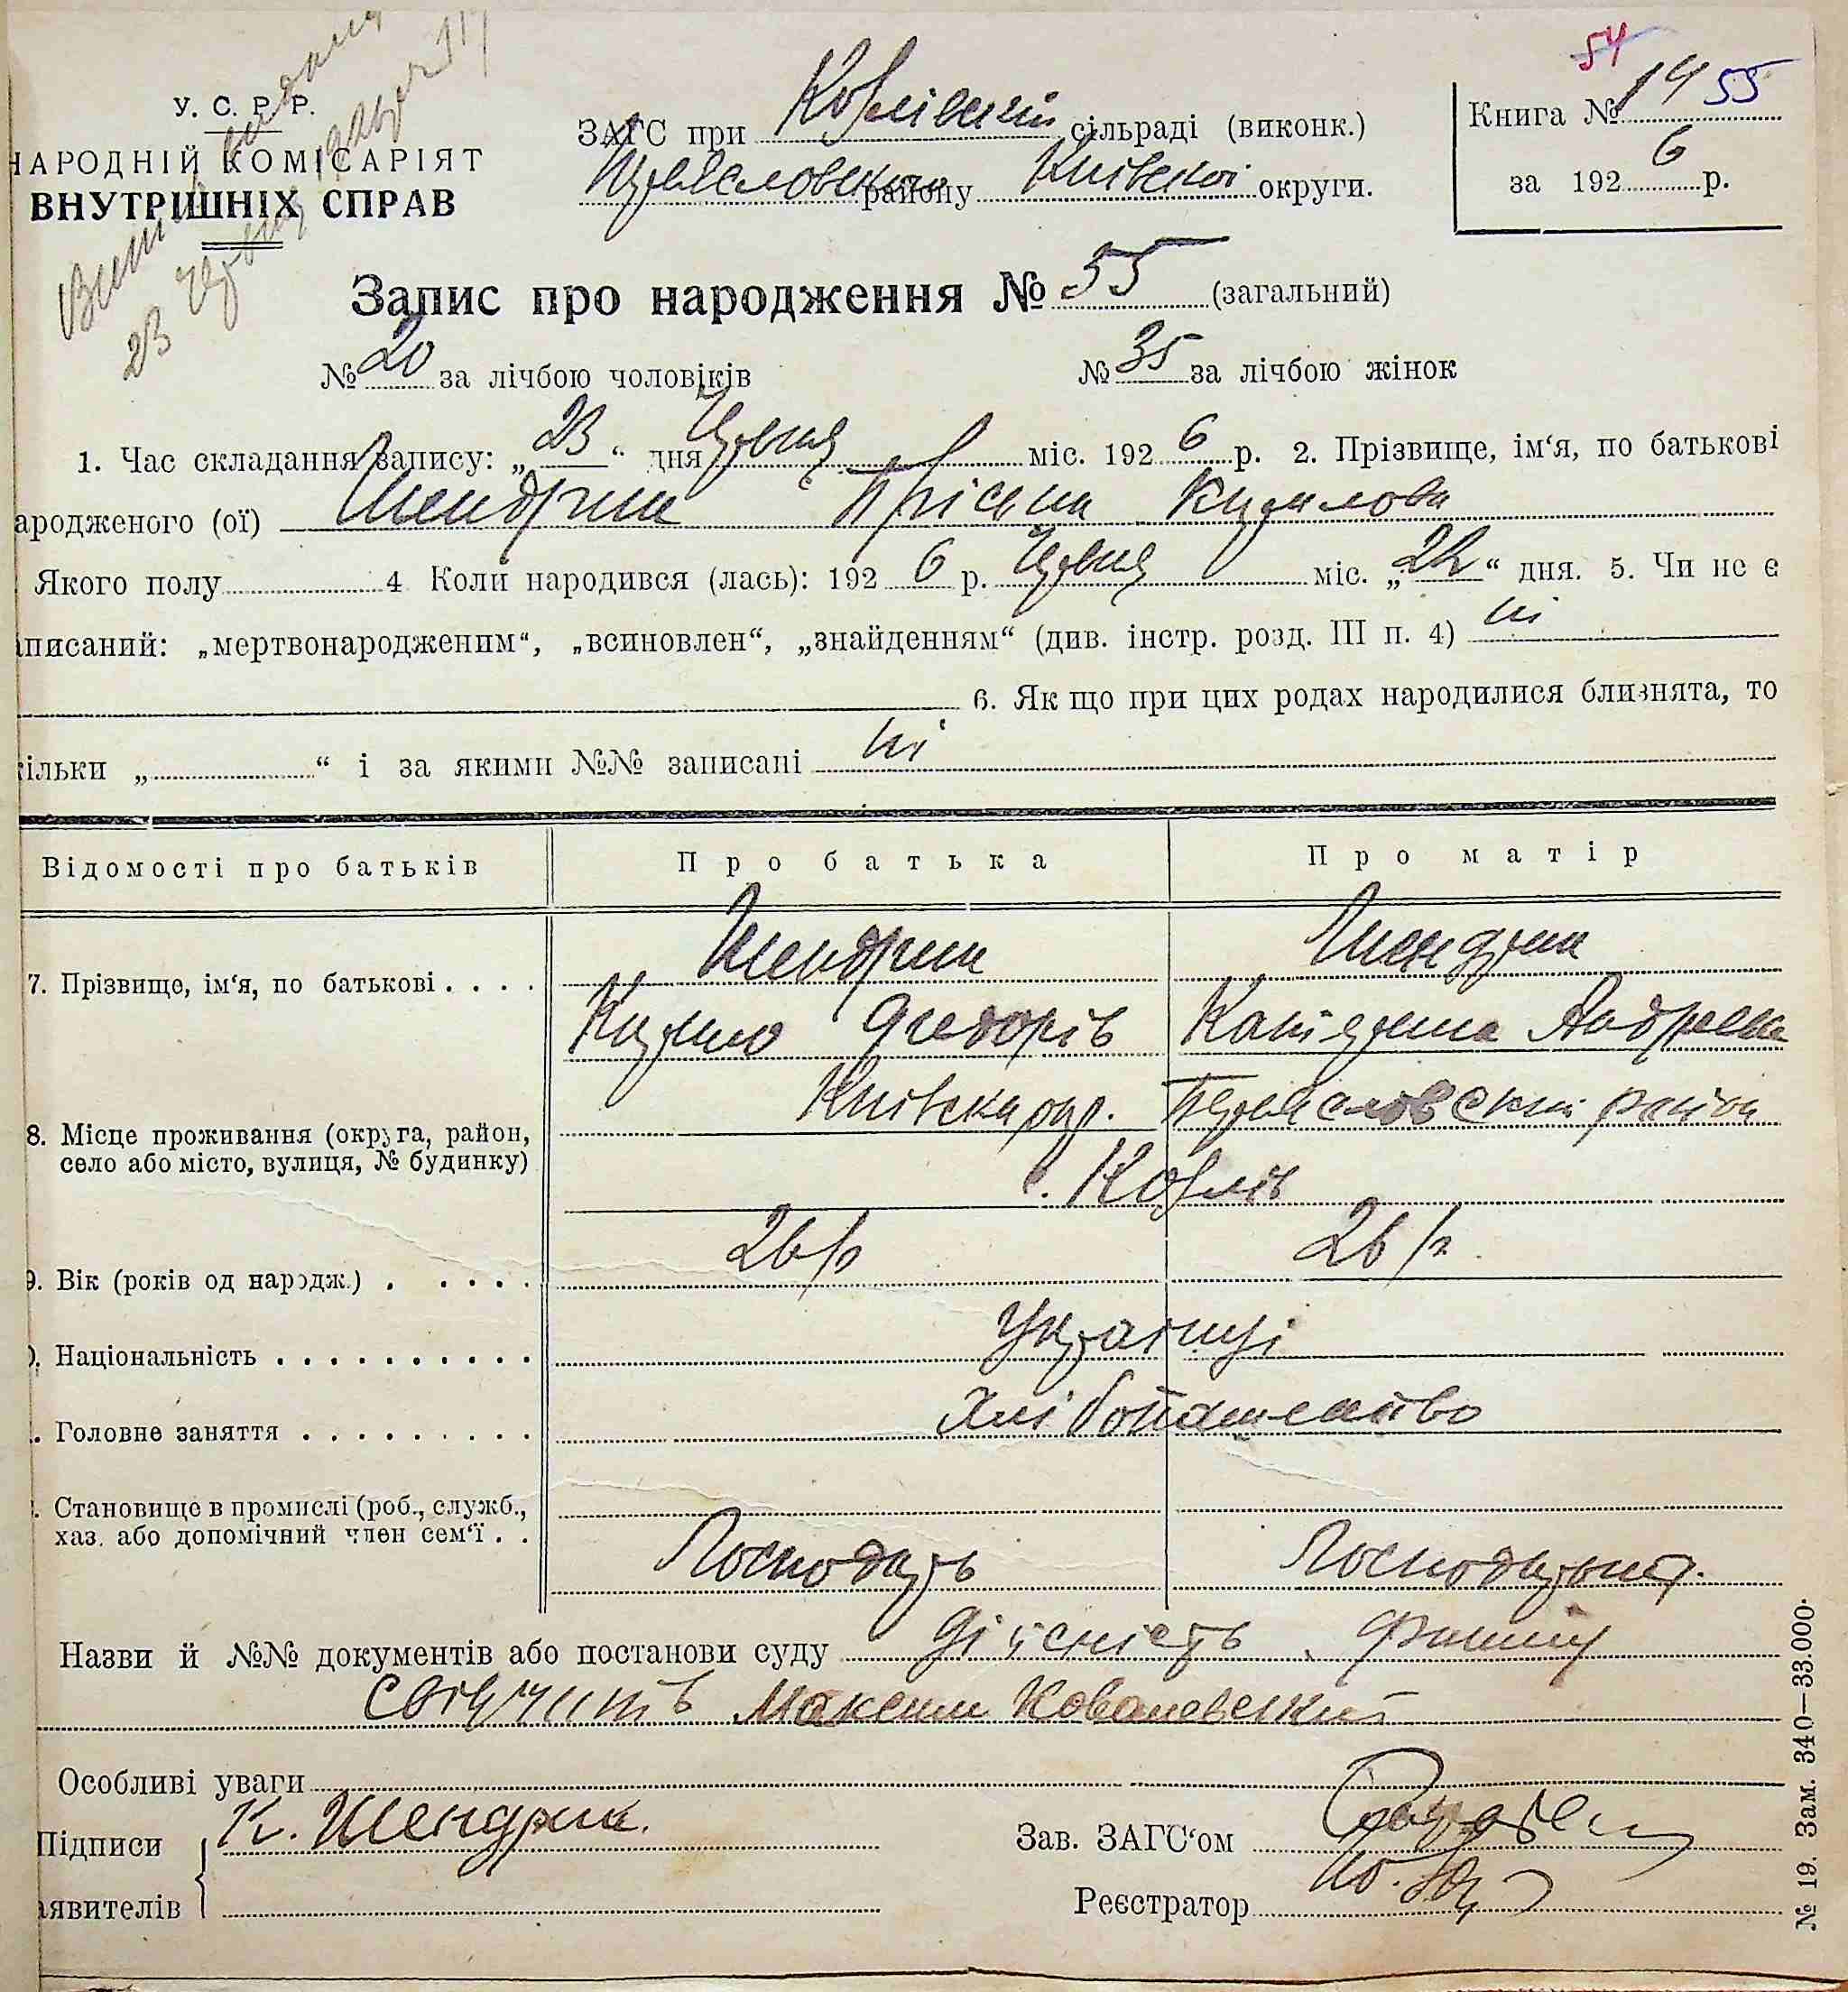 54
У. С. Р. Р.
НАРОДНІЙ КОМІСАРІЯТ
ВНУТРІШНІХ СПРАВ
23 червня
ЗАГС при Козлівській сільраді (виконк.)
Переяславського району Київської округи.
Книга № 14 55
за 1926 р.
Запис про народження № 55 (загальний)
№ 20 за лічбою чоловіків № 35 за лічбою жінок
1. Час складання запису: „23“ дня Червня міс. 1926 р. 2. Прізвище, ім‘я, по батькові
ародженого (ої) Шендрик Пріська Кузьмова
Якого полу 4 Коли народився (лась): 1926 р. Червня міс. „22“ дня. 5. Чи не є
писаний: „мертвонародженим“, „всиновлен“, „знайденням“ (див. інстр. розд. III п. 4) ні
6. Як що при цих родах народилися близнята, то
ільки „ “ і за якими №№ записані ні
Відомості про батьків Про батька Про матір
7. Прізвище, ім‘я, по батькові . . . . Шендрик Шендрик
Кузьма Федорів Катерина Андреева
8. Місце проживання (округа, район, село або місто, вулиця, № будинку) Київська окр. Переяславский район
с. Козлів
9. Вік (років од народж.) . . . . . 26 р 26 р.
Національність . . . . . . . . . . Українці
. Головне заняття . . . . . . . . . Хлібопашество
. Становище в промислі (роб., служб., хаз. або допомічний член сем‘ї . .
Господарь Господарыня.
Назви й №№ документів або постанови суду Дійсність
свідчить Максим Ковалевський
Особливі уваги
Підписи К. Шендрик. Зав. ЗАГС‘ом
аявителів Реєстратор
№ 19. Зам. 340—33.000.